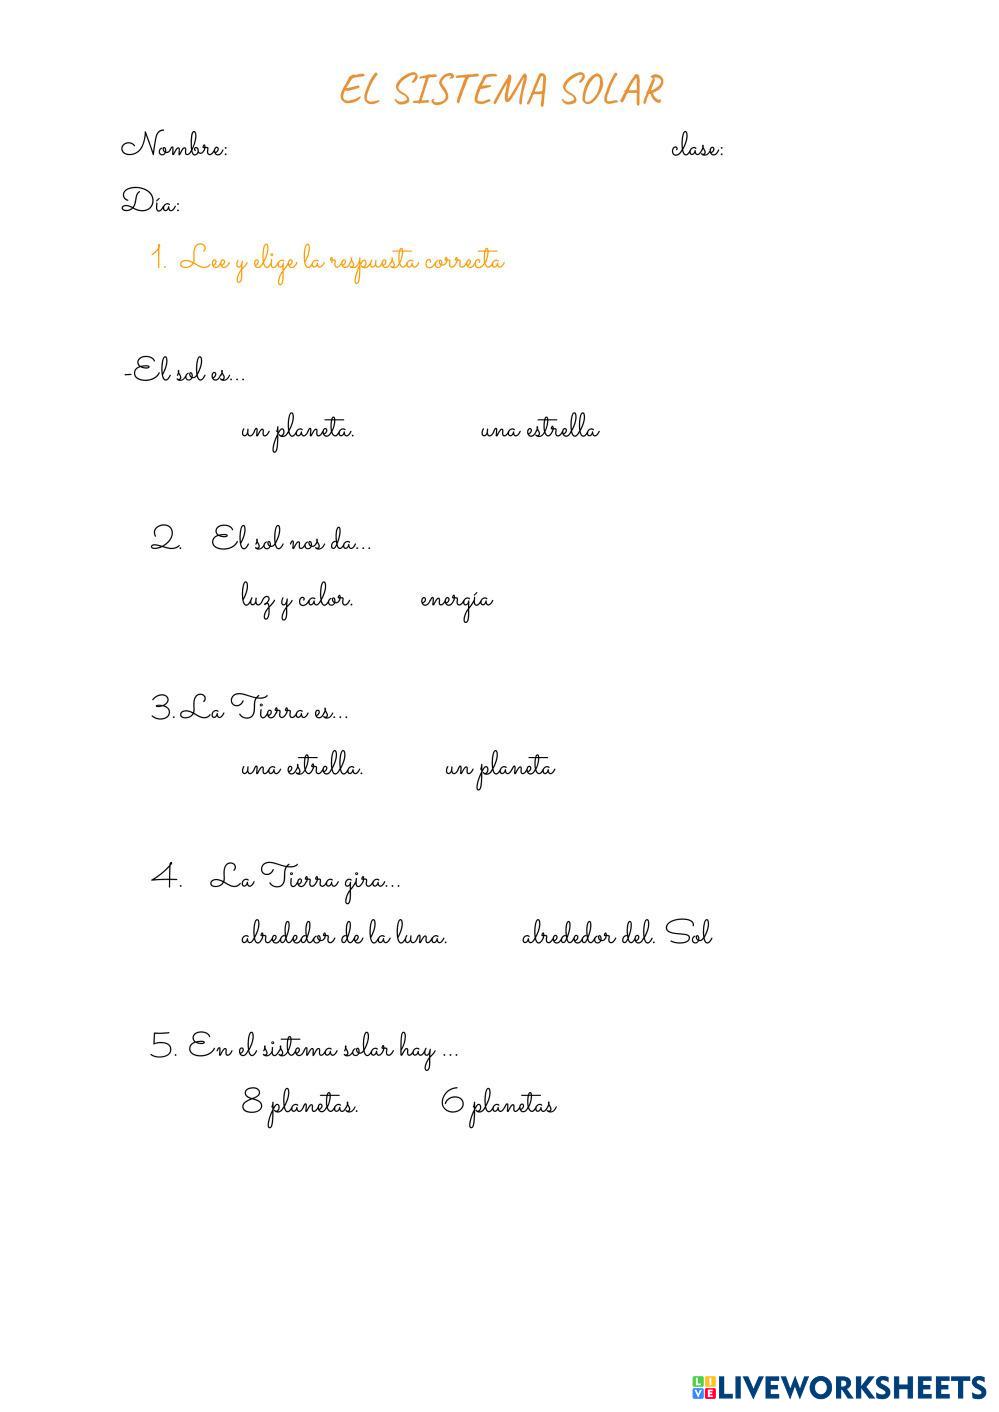 EL SISTEMA SOLAR
Nombre: clase:
Día:
1. Lee y elige la respuesta correcta
-El sol es...
un planeta. una estrella
2. El sol nos da...
luz y calor. energía
3. La Tierra es...
una estrella. un planeta
4. La Tierra gira...
alrededor de la luna. alrededor del. Sol
5. En el sistema solar hay ...
8 planetas. 6 planetas
LIVE LIVEWORKSHEETS